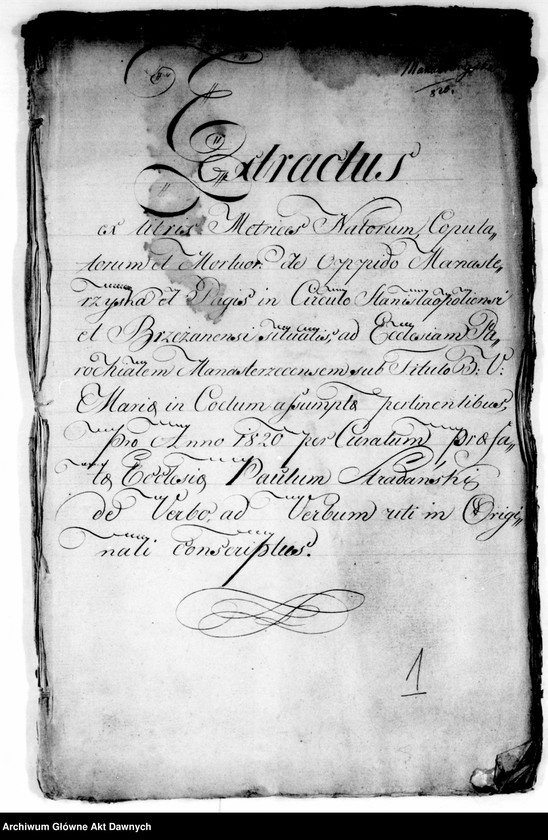 820.
Extractus
ex libris Metrices Natorum, Copula„
torum et Mortuor. de oppido Manaste„
rzyska et Pagis in Circulo Stanislaopoliensi
et Brzezanensi situatis, ad Ecclesiam Pa„
rochialem Manasterzecensem sub Titulo B: V:
Mariæ in Coelum assumptæ pertinentibus,
pro Anno 1820 per Curatum præfa„
tæ Ecclesiæ Paulum
de Verbo, ad Verbum uti in Origi„
nali conscriptus.
1
Archiwum Główne Akt Dawnych